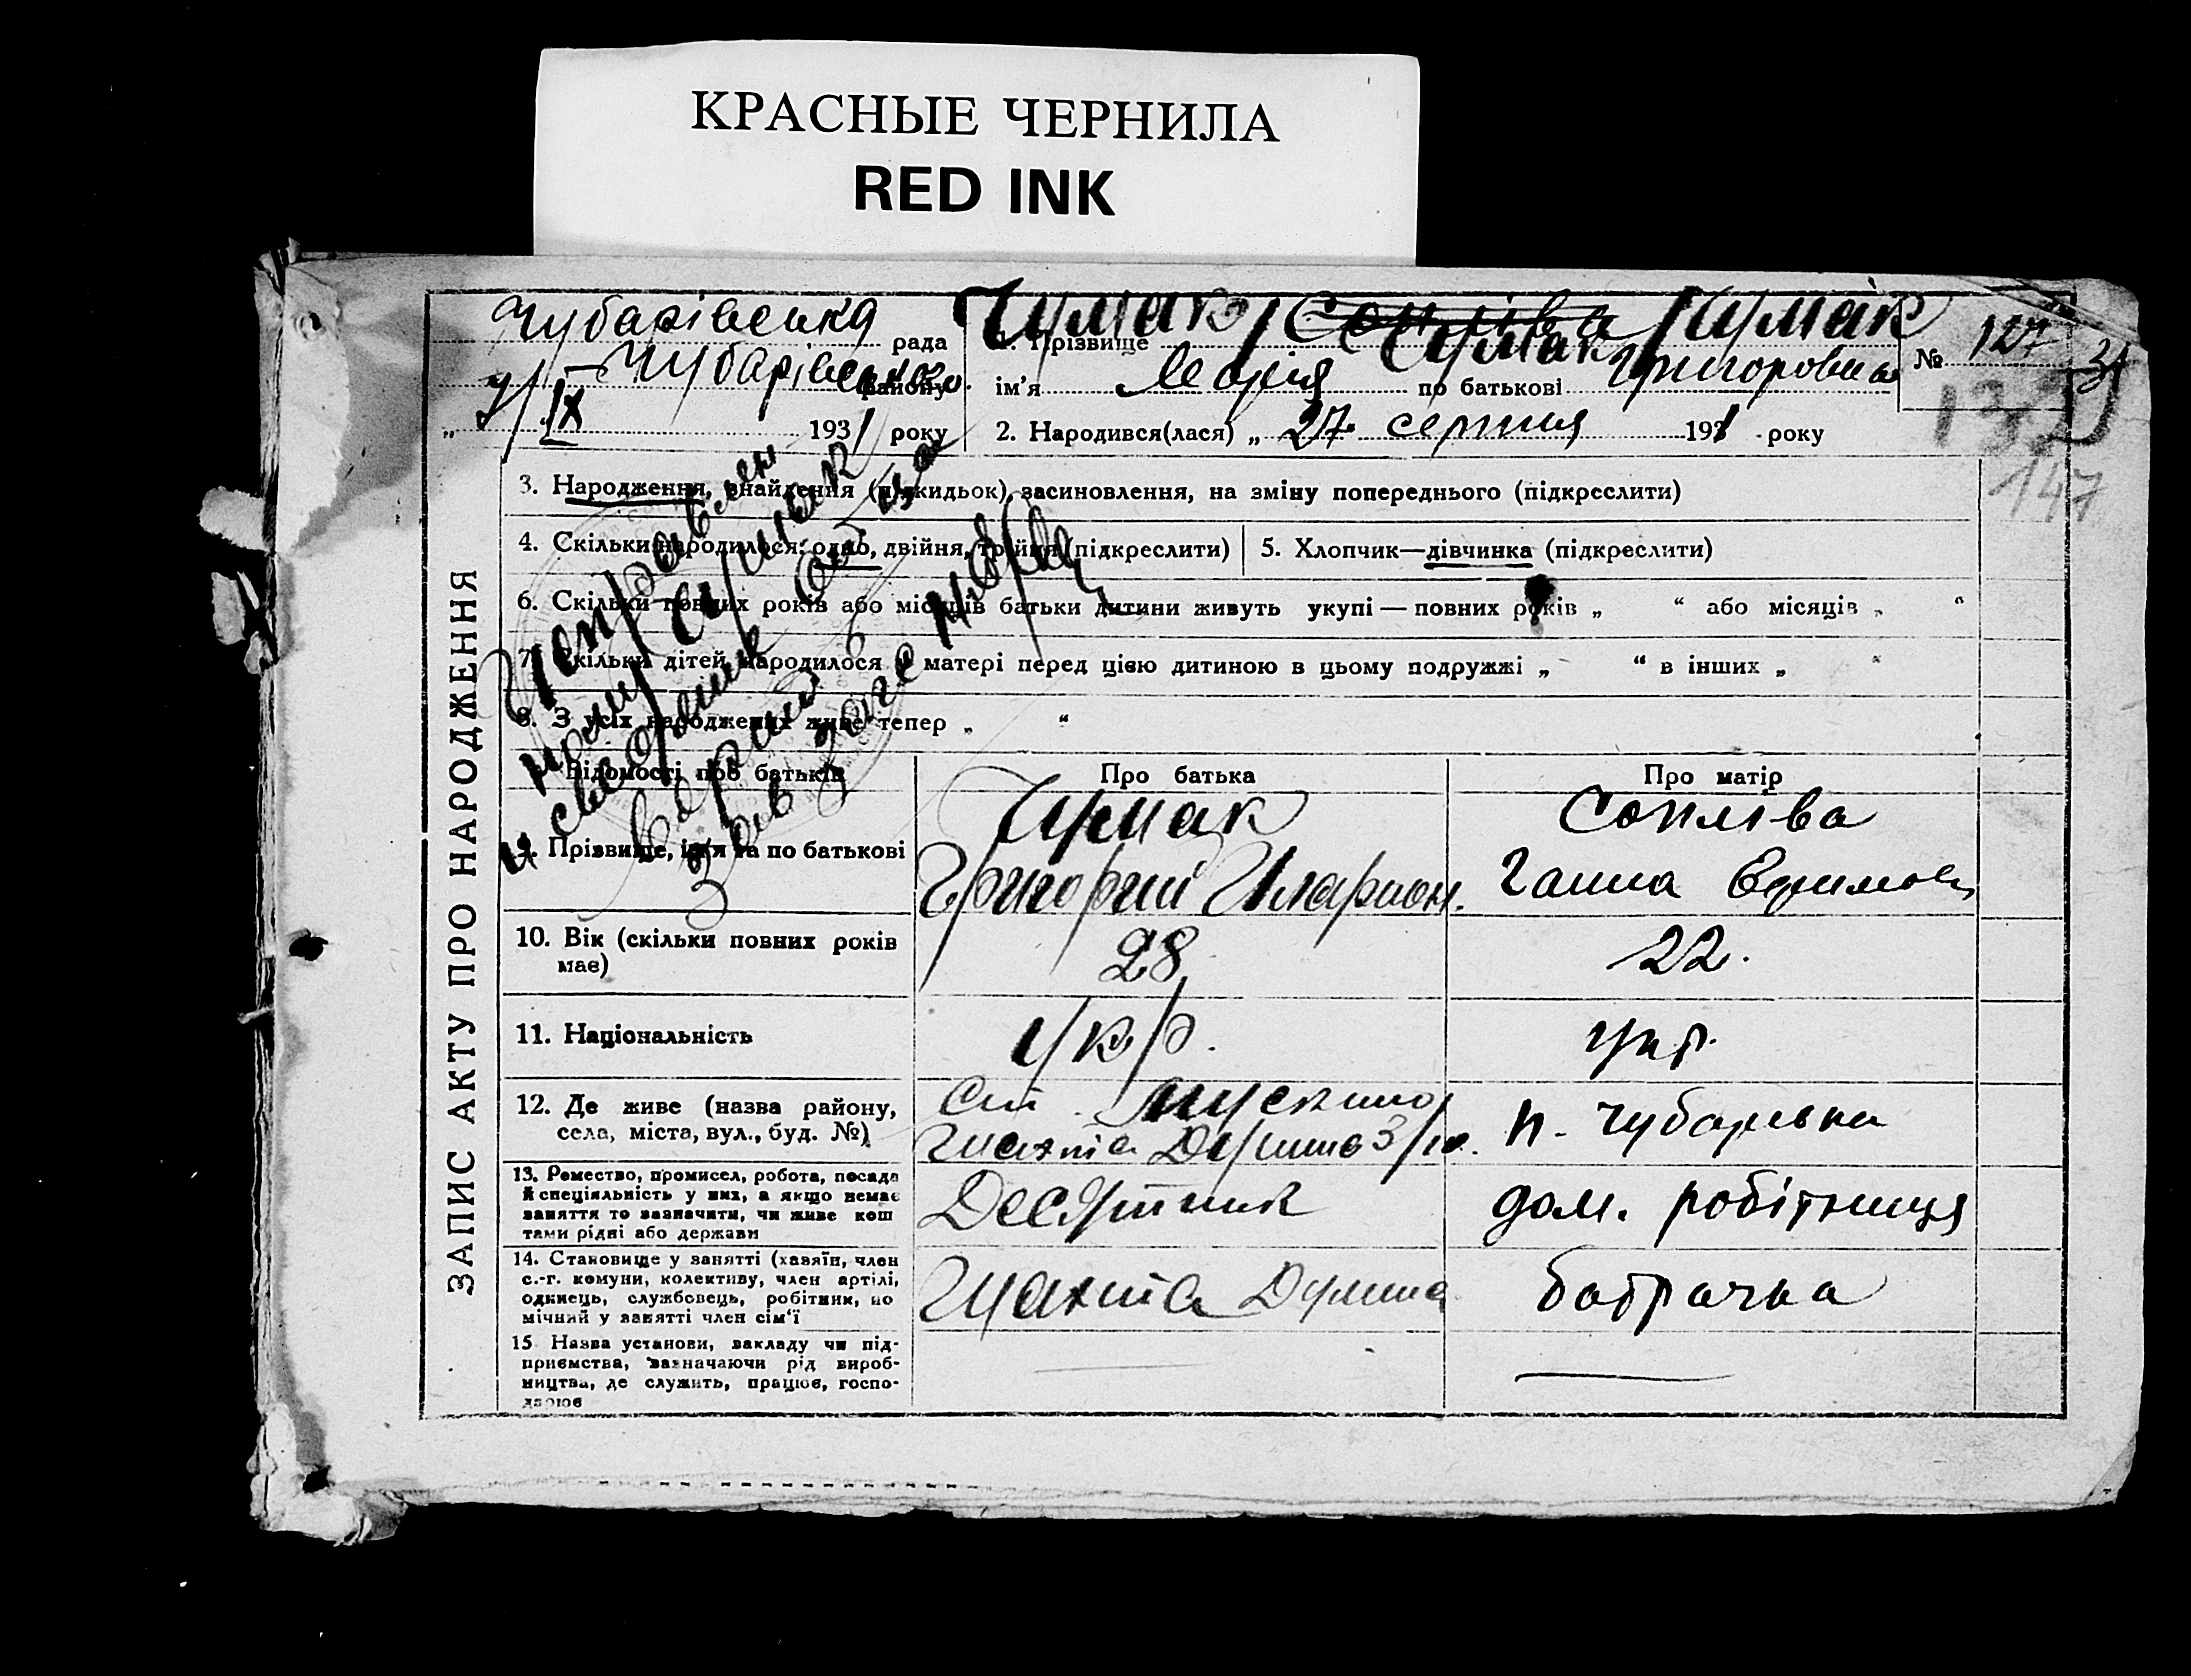 КРАСНЫЕ ЧЕРНИЛА
RED INK
Чубарівська рада
Чубарівського району
IX 1931 року
Чумак Чумак
1. Прізвище Чумак
ім’я Марія по батькові Григоровна
2. Народився(лася) „ 27 серпня 1931 року
№ 127 31
132
147
ЗАПИС АКТУ ПРО НАРОДЖЕННЯ
3. Народження, знайдення (підкидьок), засиновлення, на зміну попереднього (підкреслити)
4. Скільки народилося: одно, двійня, трійня (підкреслити)
5. Хлопчик—дівчинка (підкреслити)
6. Скільки повних років або місяців батьки дитини живуть укупі — повних років „ “ або місяців „ “
7. Скільки дітей народилося у матері перед цією дитиною в цьому подружжі „ “ в інших „ “
8. З усіх народжених живе тепер „ “
Відомості про батьків
Про батька
Про матір
9. Прізвище, ім’я та по батькові
Чумак
Григорий Иларион.
Соплїва
Ганна Ефимовн
10. Вік (скільки повних років має)
28
22.
11. Національність
укр.
укр.
12. Де живе (назва району,
села, міста, вул., буд. №)
шахта
п. Чубаревка
13. Ремество, промисел, робота, посада
й спеціяльність у них, а якщо немає
заняття то зазначити, чи живе кош
тами рідні або держави
Десятник
дом. робітниця
14. Становище у занятті (хазяїн, член
с.-г. комуни, колективу, член артілі,
одинець, службовець, робітник, по
мічний у занятті член сім‘ї
Шахта
батрачка
15 Назва установи, закладу чи під-
приємства, зазначаючи рід вироб-
ництва, де служить, працює, госпо-
дарює